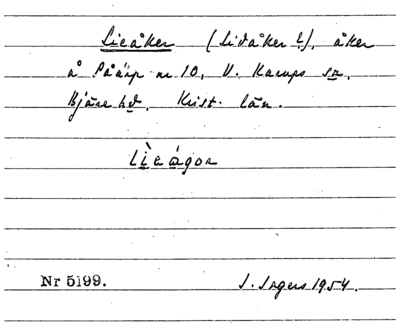 Lieåker (Lidåker?), åker
å Påarp nr 10, V. Karups sn,
Bjäre hd. Krist. län.
lìeágor
Nr 5199. J. Ingers 1954.